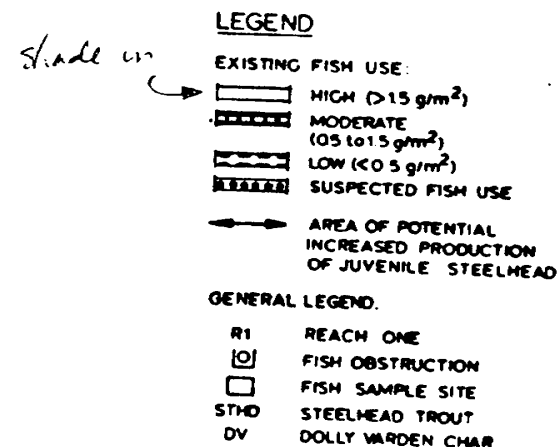 LEGEND
shade in
EXISTING FISH USE:
HIGH (>1.5 g/m²)
MODERATE
(0.5 to 1.5 g/m²)
LOW (<0.5 g/m²)
SUSPECTED FISH USE
AREA OF POTENTIAL
INCREASED PRODUCTION
OF JUVENILE STEELHEAD
GENERAL LEGEND.
R1 REACH ONE
FISH OBSTRUCTION
FISH SAMPLE SITE
STHD STEELHEAD TROUT
DV DOLLY VARDEN CHAR